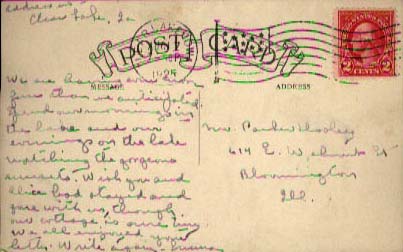 address is
Clear Lake, Ia
POST CARD
1925
MESSAGE
ADDRESS
2 CENTS 2
We are having even more
fun than we anticipated.
Spend our mornings in
the lake and our
evenings on the lake
watching the gorgeous
sunsets. Wish you and
Alice had stayed and
gone with us, though
our cottage is sure tiny.
We all enjoyed your
Write again -
Mrs. Parker
614 E. Walnut St
Bloomington
Ill.